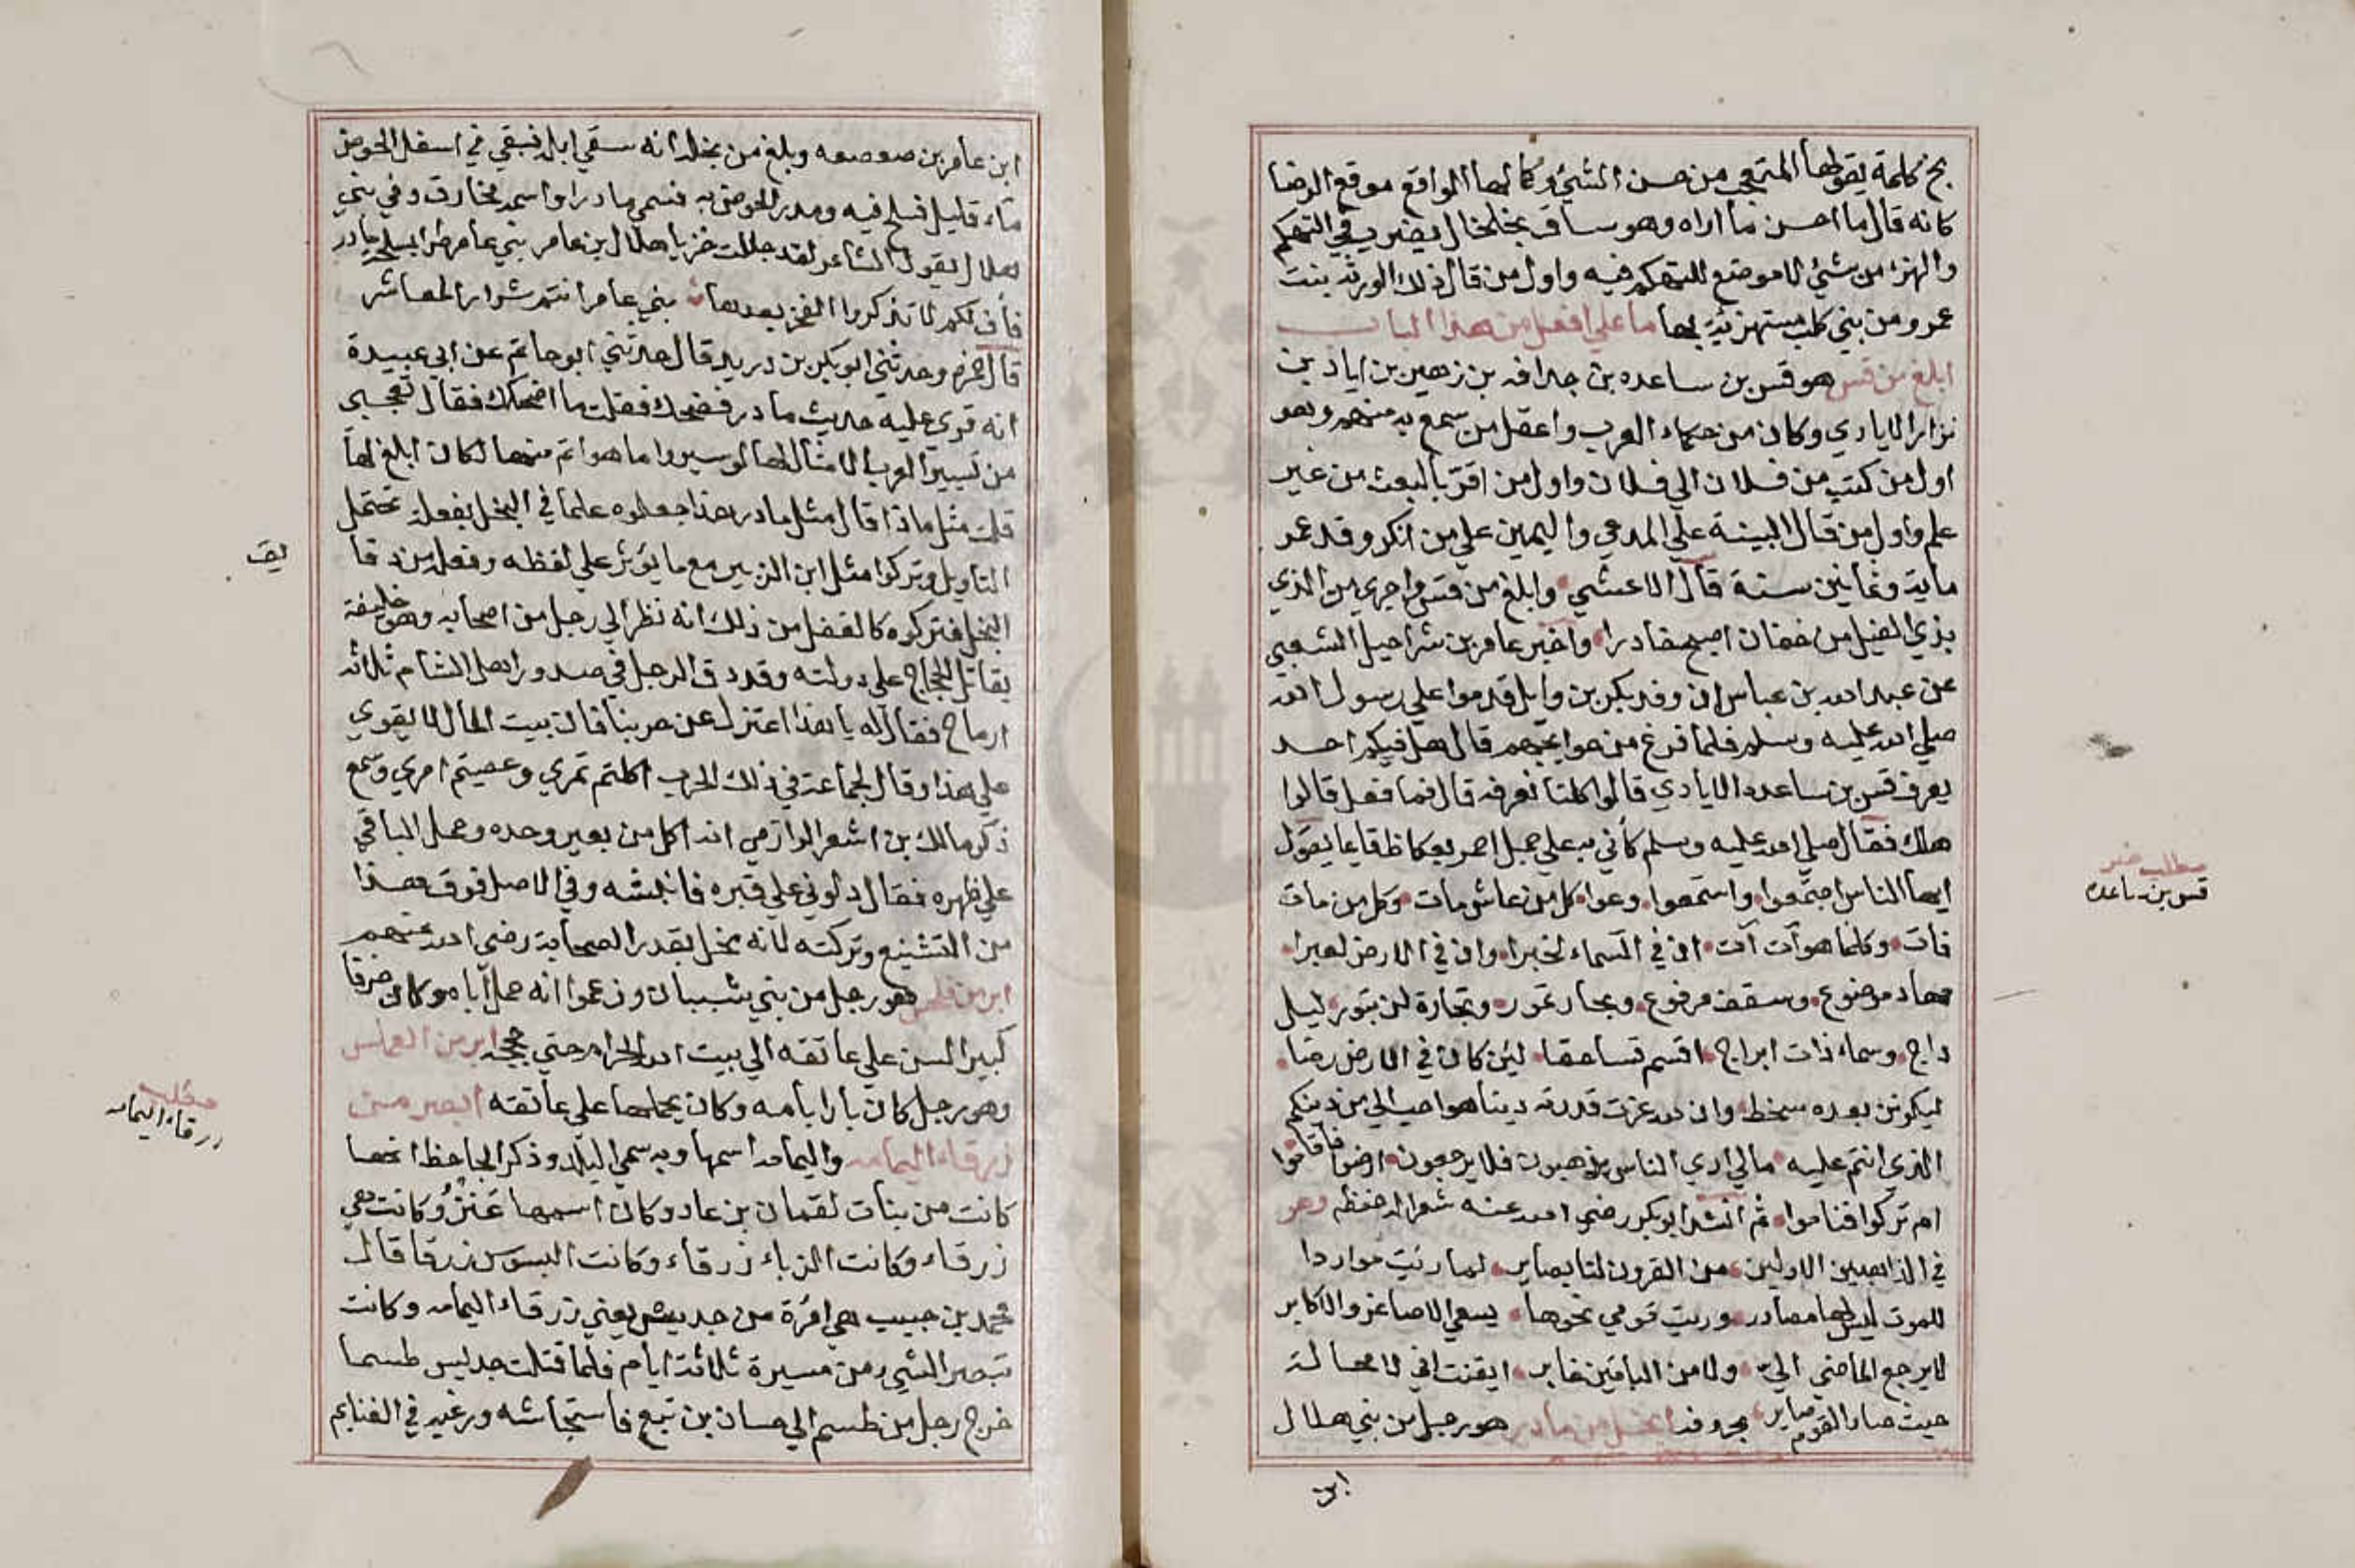 بخ كلمة يقولها المتعجب من حسن الشيئ وكمالها الواقع موقع الرضا
كانه قال ما احسن ما اراه وهو ساق بخلخال يضرب في التهكم
والهزء من شيئ لا موضع للتهكم فيه واول من قال ذلك الورثة بنت
عمرو من بني كلب مستهزئة بها ما علي افعل من هذا الباب
ابلغ من قس هو قس بن ساعده بن حدافه بن زهير بن اياد بن
نزار الايادي وكان من حكماء العرب واعقل من سمع به منهم وهو
اول من كتب من فلان الي فلان واول من اقر بالبعث من غير
علم واول من قال البينة علي المدعي واليمين علي من انكر وقد عمر
ماية وثمانين سنة قال الاعشي وابلغ من قس واجري من الذي
بذي الغيل من خفان اصبح خادرا واخبر عامر بن شراحيل الشعبي
عن عبد الله بن عباس ان وفد بكر بن وايل قدموا علي رسول الله
صلي الله عليه وسلم فلما فرغ من حوايجهم قال هل فيكم احد
يعرف قس بن ساعده الايادي قالوا كلنا نعرفه قال فما فعل قالوا
هلك فقال صلي الله عليه وسلم كأني به علي جمل احمر بعكاظ قايما يقول
ايها الناس اجتمعوا واستمعوا وعوا كل من عاش مات وكل من مات
فات وكلما هو آت آت ان في السماء لخبرا وان في الارض لعبرا
مهاد موضوع وسقف مرفوع وبحار تمور وتجارة لن تبور ليل
داج وسماء ذات ابراج اقسم قسا حقا لئن كان في الارض رضا
ليكونن بعده سخط وان لله عزت قدرته دينا هو احب الي من دينكم
الذي انتم عليه مالي اري الناس يذهبون فلا يرجعون ارضوا فاقاموا
ام تركوا فناموا ثم انشد ابو بكر رضي الله عنه شعرا له حفظه وهو
في الذاهبين الاولين من القرون لنا بصاير لما رئيت مواردا
للموت ليس لها مصادر وريت قومي نحوها يسعي الاصاغر والاكابر
لا يرجع الماضي الي ولا من الباقين غابر ايقنت اني لا محالة
حيث صار القوم صاير ابخل من مادر هو رجل من بني هلال
ابن
مطلب خبر
قس بن ساعده
ابن عامر بن صعصعه وبلغ من بخله انه سقي ابله فبقي في اسفل الحوض
ماء قليل فسلح فيه ومدر الحوض به فسمي مادرا واسمه مخارق وفي بني
هلال يقول الشاعر لقد جللت خزيا هلال بن عامر بني عامر طرا بسلح مادر
فأف لكم لا تذكروا الفخر بعدها بني عامر انتم شرار المعاشر
قال حمزه وحدثني ابو بكر بن دريد قال حدثني ابو حاتم عن ابي عبيدة
انه قري عليه حديث مادر فضحك فقلت ما اضحكك فقال تعجبي
من تسيير العرب الامثال لها لو سيروا ما هو اتم منها لكان ابلغ لها
قلت مثل ماذا قال مثل مادر هذا جعلوه علما في البخل بفعلة تحتمل
التاويل وتركوا مثل ابن الزبير مع ما يؤثر علي لفظه وفعله من دقا
يق
البخل فتركوه كالغفل من ذلك انه نظر الي رجل من اصحابه وهو خليفة
يقاتل الحجاج علي دولته وقد دق الرجل في صدور اهل الشام ثلاثه
ارماح فقال له يا هذا اعتزل عن حربنا فان بيت المال لا يقوي
علي هذا وقال لجماعة في ذلك الحرب اكلتم تمري وعصيتم امري وسمع
ذكر مالك بن اشعر الوازمي انه اكل من بعير وحده وحمل الباقي
علي ظهره فقال دلوني علي قبره فانبشه وفي الاصل فوق هذا
من التشنيع وتركته لانه يخل بقدر الصحابة رضي الله عنهم
ابر من فلحس هو رجل من بني شيبان وزعموا انه حمل آباه وكان خرفا
كبير السن علي عاتقه الي بيت الله الحرام حتي حججه ابر من العملس
وهو رجل كان بارا بامه وكان يحملها علي عاتقه ابصر من
زرقاء اليمامه واليمامه اسمها وبه سمي البلد وذكر الجاحظ انها
كانت من بنات لقمان بن عاد وكان اسمها عنز وكانت هي
زرقاء وكانت الزباء زرقاء وكانت البسوس زرقا قال
محمد بن حبيب هي امرة من جديس يعني زرقاء اليمامه وكانت
تبصر الشيء من مسيرة ثلاثة ايام فلما قتلت جديس طسما
خرج رجل من طسم الي حسان بن تبع فاستجاشه ورغبه في الغنايم
مطلب
زرقاء اليمامه